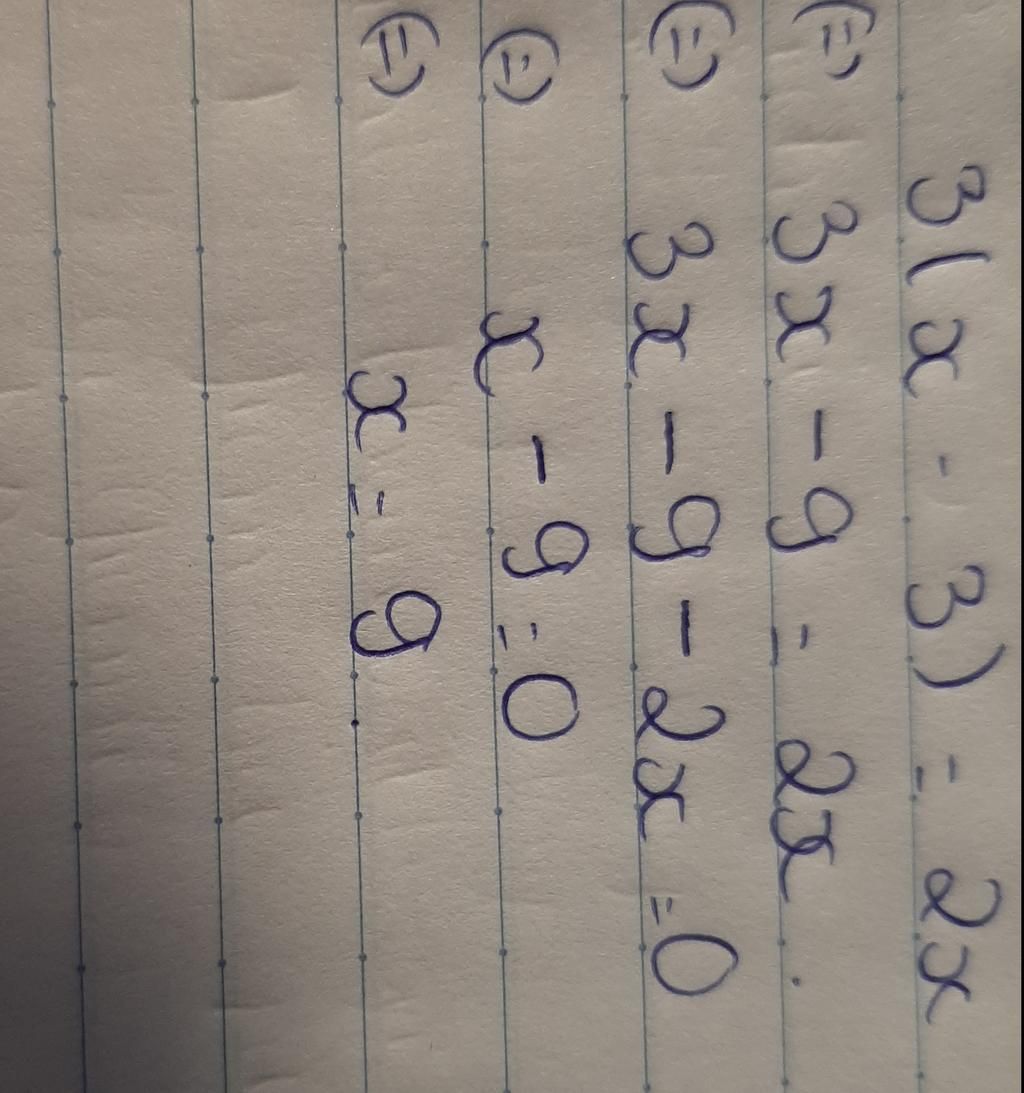 3(x - 3) = 2x
(=) 3x - 9 = 2x.
(=) 3x - 9 - 2x = 0
(=) x - 9 = 0
(=) x = 9